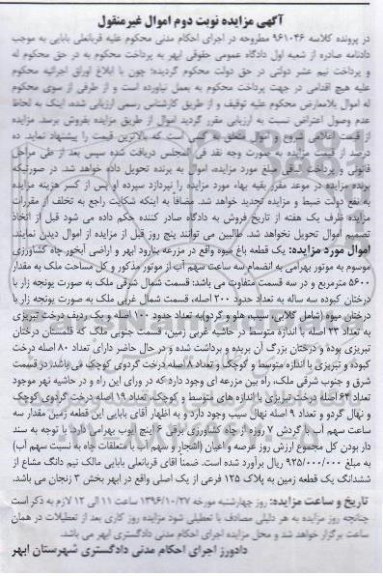 آگهی مزایده نوبت دوم اموال غیرمنقول
در پرونده کلاسه ۹۶۱۰۴۶ مطروحه در اجرای احکام مدنی محکوم علیه قربانعلی بابایی به موجب
دادنامه صادره از شعبه اول دادگاه عمومی حقوقی ابهر به پرداخت محکوم به در حق محکوم له
و پرداخت نیم عشر دولتی در حق دولت محکوم گردیده؛ چون با ابلاغ اوراق اجرائیه محکوم
علیه هیچ اقدامی در جهت پرداخت محکوم به بعمل نیاورده است و از طرفی از سوی محکوم
له اموال بلامعارض محکوم علیه توقیف و از طریق کارشناس رسمی ارزیابی شده، اینک به لحاظ
عدم وصول اعتراض نسبت به ارزیابی مقرر گردید اموال از طریق مزایده بفروش برسد. مزایده
از قیمت اعلامی شروع و اموال متعلق به کسی است که بالاترین قیمت را پیشنهاد نماید. ده
درصد از قیمت مزایده به صورت وجه نقد فی المجلس دریافت شده سپس بعد از طی مراحل
قانونی و پرداخت مابقی مبلغ مورد مزایده، اموال به برنده تحویل داده خواهد شد. در صورتیکه
برنده مزایده در موعد مقرر بقیه بهاء مورد مزایده را نپردازد سپرده او پس از کسر هزینه مزایده
به نفع دولت ضبط و مزایده تجدید خواهد شد. مضافا به اینکه شکایت راجع به تخلف از مقررات
مزایده ظرف یک هفته از تاریخ فروش به دادگاه صادر کننده حکم داده می شود قبل از اتخاذ
تصمیم اموال تحویل نخواهد شد. طالبین می توانند پنج روز قبل از مزایده از اموال دیدن نمایند.
اموال مورد مزایده: یک قطعه باغ میوه واقع در مزرعه بیارود ابهر و اراضی آبخور چاه کشاورزی
موسوم به موتور بهرامی به انضمام سه ساعت سهم آب از موتور مذکور و کل مساحت ملک به مقدار
۵۶۰۰ مترمربع و در سه قسمت متفاوت می باشد: قسمت شمال شرقی ملک به صورت یونجه زار با
درختان کبوده سه ساله به تعداد حدود ۲۰۰ اصله، قسمت شمال غربی ملک به صورت یونجه زار با
درختان میوه (شامل گلابی، سیب، هلو و گردو) به تعداد حدود ۱۰۰ اصله و یک ردیف درخت تبریزی
به تعداد ۲۳ اصله با اندازه متوسط در حاشیه غربی زمین، قسمت جنوبی ملک که قلمستان درختان
تبریزی بوده و درختان بزرگ آن بریده و برداشت شده و در حال حاضر دارای تعداد ۸۰ اصله درخت
کبوده و تبریزی با اندازه متوسط و کوچک و تعداد ۸ اصله درخت گردوی کوچک می باشد. در قسمت
شرق و جنوب شرقی ملک، راه بین مزرعه ای وجود دارد که در ورای این راه و در حاشیه نهر موجود
تعداد ۶۴ اصله درخت تبریزی با اندازه های متوسط و کوچک، تعداد ۱۹ اصله درخت گردوی کوچک
و نهال گردو و تعداد ۹ اصله نهال سیب وجود دارد و به اظهار آقای بابایی این قطعه زمین مقدار سه
ساعت سهم آب با گردش ۷ روزه از چاه کشاورزی برقی ۶ اینچ آبوب بهرامی دارد. با توجه به سند
دار بودن کل مجموع ارزش روز عرصه و اعیان (اشجار و سهم آب با متعلقات چاه به نسبت سهم آب)
به مبلغ ۹۲۵/۰۰۰/۰۰۰ ریال برآورد شده است. ضمنا آقای قربانعلی بابایی مالک نیم دانگ مشاع از
ششدانگ یک قطعه زمین به پلاک ۱۲۵ فرعی از یک اصلی واقع در ابهر بخش ۳ زنجان می باشد.
تاریخ و ساعت مزایده: روز چهارشنبه مورخه ۱۳۹۶/۱۰/۲۷ ساعت ۱۱ الی ۱۲ لازم به ذکر است
چنانچه روز مزایده به هر دلیلی مصادف با تعطیلی شود مزایده روز کاری بعد از تعطیلات در همان
ساعت برگزار خواهد شد و محل مزایده اجرای احکام مدنی دادگستری ابهر می باشد.
دادورز اجرای احکام مدنی دادگستری شهرستان ابهر